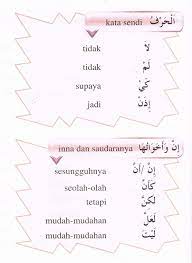 kata sendi اَلْحَرْفُ
tidak لَا
tidak لَمْ
supaya كَيْ
jadi إِذَنْ
inna dan saudaranya إِنَّ وَأَخَوَاتُهَا
sesungguhnya إِنَّ / أَنَّ
seolah-olah كَأَنَّ
tetapi لَكِنَّ
mudah-mudahan لَعَلَّ
mudah-mudahan لَيْتَ